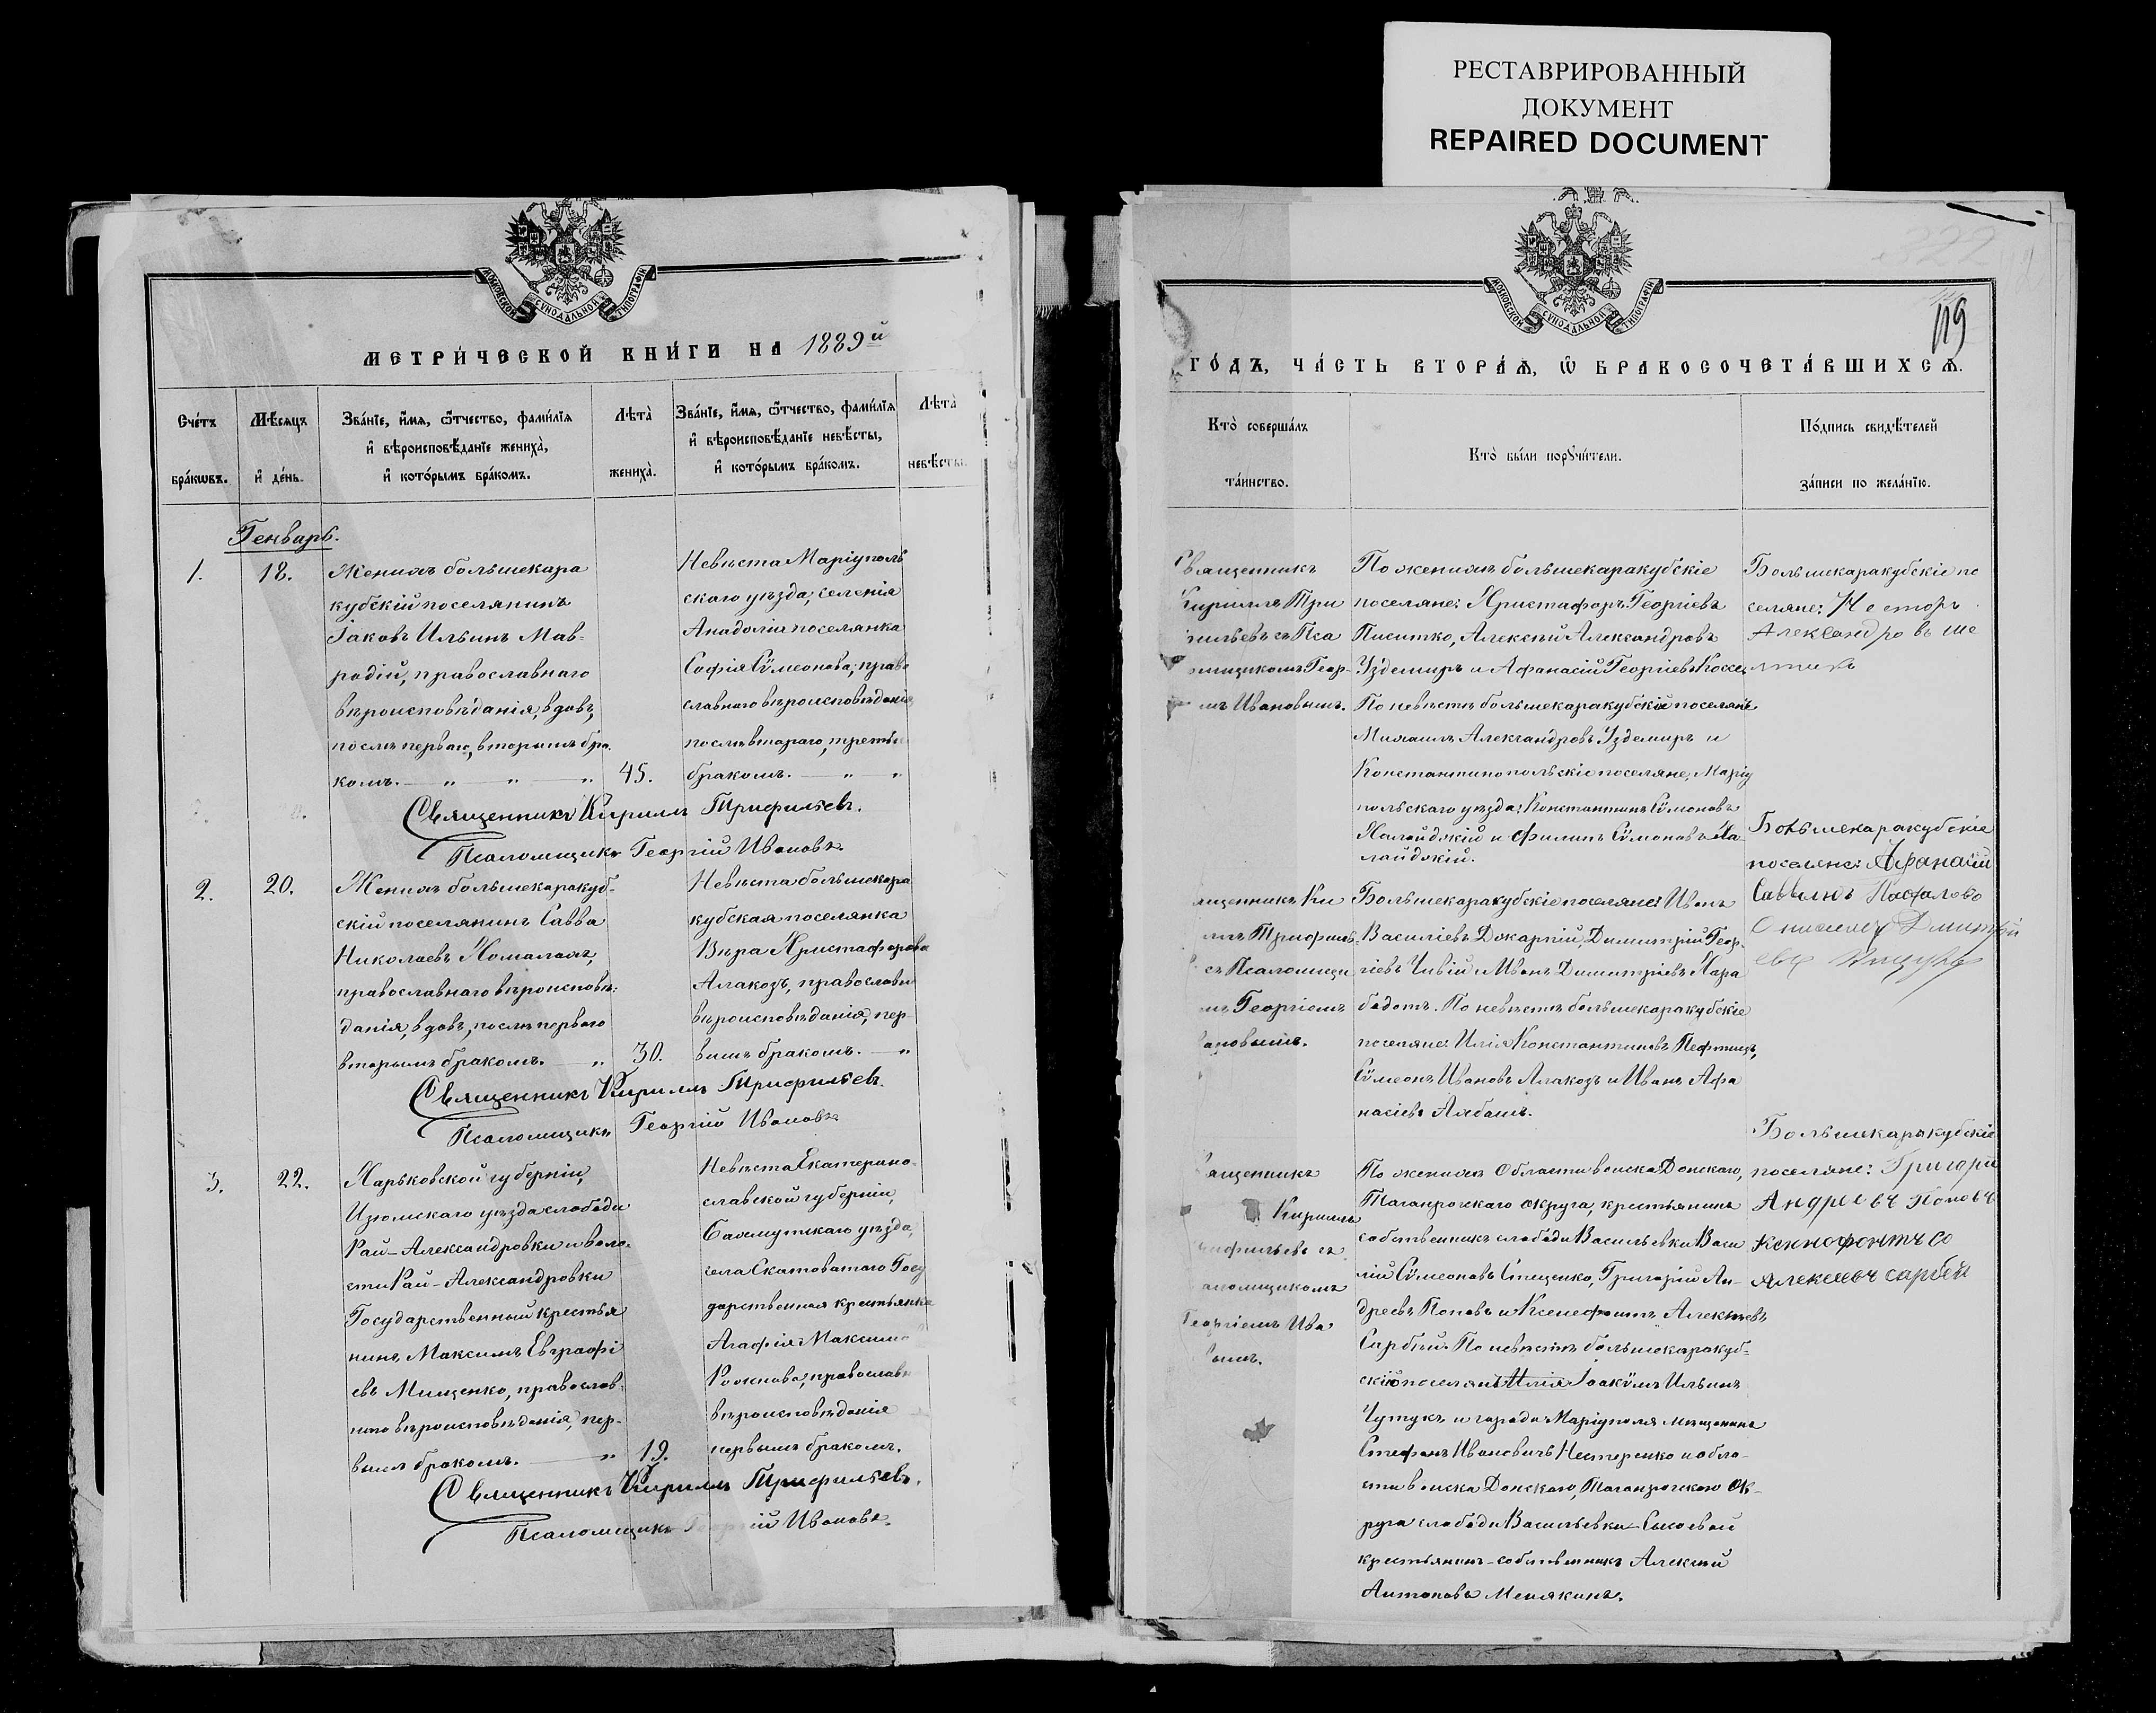 РЕСТАВРИРОВАННЫЙ
ДОКУМЕНТ
REPAIRED DOCUMENT
МОСКОВСКОЙ СѴНОДАЛЬНОЙ ТИПОГРАФІИ
МЕТРИ́ЧЕСКОЙ КНИ́ГИ НА 1889й
Сче́тъ
бра́кωвъ.
Мѣ́сяцъ
и҆ де́нь.
Зва́нїе, и҆́мѧ, ѻ҆́тчество, фами́лїѧ
и҆ вѣроисповѣ́данїе жениха̀,
и҆ кото́рымъ бра́комъ.
Лѣта̀
жениха̀.
Зва́нїе, и҆́мѧ, ѻ҆́тчество, фами́лїѧ
и҆ вѣроисповѣ́данїе невѣ́сты,
и҆ кото́рымъ бра́комъ.
Лѣта̀
невѣ́сты.
Генварь.
1.
18.
Женихъ большекара
кубскій поселянинъ
Іаковъ Ильинъ Мав-
родій, православнаго
вѣроисповѣданія, вдовъ,
послѣ перваго, вторымъ бра
комъ. — „ „ — „
45.
Невѣста Маріуполь
скаго уѣзда, селенія
Анадоліи поселянка
Софія Сѵмеонова, право
славнаго вѣроисповѣданія
послѣ втораго, третьи
бракомъ. — „ „
Священникъ Кириллъ Трифильевъ.
Псаломщикъ Георгій Ивановъ
2.
20.
Женихъ большекаракуб-
скій поселянинъ Савва
Николаевъ Хомалахъ,
православнаго вѣроисповѣ-
данія, вдовъ, послѣ перваго
вторымъ бракомъ. — „
30.
Невѣста большекара
кубская поселянка
Вѣра Христофорова
Алакозъ, православн
вѣроисповѣданія, пер-
вымъ бракомъ. — „
Священникъ Кириллъ Трифильевъ.
Псаломщикъ Георгій Ивановъ
3.
22.
Харьковской губерніи,
Изюмскаго уѣзда слободы
Рай-Александровки и воло-
сти Рай-Александровки
Государственный крестья
нинъ Максимъ Евграфі
евъ Мищенко, православ-
наго вѣроисповѣданія, пер-
вымъ бракомъ. — „
19.
Невѣста Екатерино-
славской губерніи,
Бахмутскаго уѣзда,
села Скотоватаго Госу
дарственная крестьянка
Агафія Максимо
Рожнова, православн
вѣроисповѣданія
первымъ бракомъ.
Священникъ Кириллъ Трифильевъ.
Псаломщикъ Георгій Ивановъ.
322
МОСКОВСКОЙ СѴНОДАЛЬНОЙ ТИПОГРАФІИ
119
ГО́ДЪ, ЧА́СТЬ ВТОРА́Ѧ, Ѽ БРАКОСОЧЕТА́ВШИХСѦ.
Кто̀ соверша́лъ
та́инство.
Кто̀ бы́ли порꙋчи́тели.
По́дпись свидѣ́телей
за́писи по жела́нїю.
Священникъ
Кириллъ Три
фильевъ съ Пса
омщикомъ Геор-
мъ Ивановымъ.
По женихѣ большекаракубскіе
поселяне: Христофоръ Георгіевъ
Писитко, Алексѣй Александровъ
Уздемиръ и Афанасій Георгіевъ Коссе
По невѣстѣ большекаракубскіе поселяне
Михаилъ Александровъ Уздемиръ и
Константинопольскіе поселяне, Маріу
польскаго уѣзда: Константинъ Сѵмоновъ
Халайджій и Филипъ Сѵмоновъ Ха-
лайджій.
Большекаракубскіе по
селяне: Несторъ
Александровъ
ащенникъ Ки
лъ Трифиль
съ Псаломщи
мъ Георгіемъ
ановымъ.
Большекаракубскіе поселяне: Иванъ
Василіевъ Джарпій, Димитрій Геор-
гіевъ Чивій и Иванъ Димитріевъ Кара
бадотъ. По невѣстѣ большекаракубскіе
поселяне: Илія Константиновъ Пефтіевъ,
Сѵмеонъ Ивановъ Алакозъ и Иванъ Афа
насіевъ Албашъ.
Большекаракубскіе
поселяне: Афанасій
Саввинъ
ащенникъ
Кириллъ
ифильевъ съ
аломщикомъ
Георгіемъ Ива
вымъ.
По женихѣ Области войска Донскаго,
Таганрогскаго округа, крестьянинъ
собственникъ слободы Васильевки Васи
лій Сѵмеоновъ Стеценко, Григорій Ан-
дреевъ Поповъ и Ксенофонтъ Алексѣевъ
Сарбѣй. По невѣстѣ большекаракуб-
скій поселянъ Илія Іоакимъ Ильинъ
Чутукъ и города Маріуполя мѣщанинъ
Стефанъ Ивановичъ Нестеренко и обла-
сти войска Донскаго, Таганрогскаго ок-
руга слободы Васильевки
крестьянинъ-собственникъ Алексѣй
Антоновъ Менякинъ.
Большекаракубскіе
поселяне: Григорій
Андреевъ Поповъ
Ксенофонтъ
Алексеевъ Сарбей